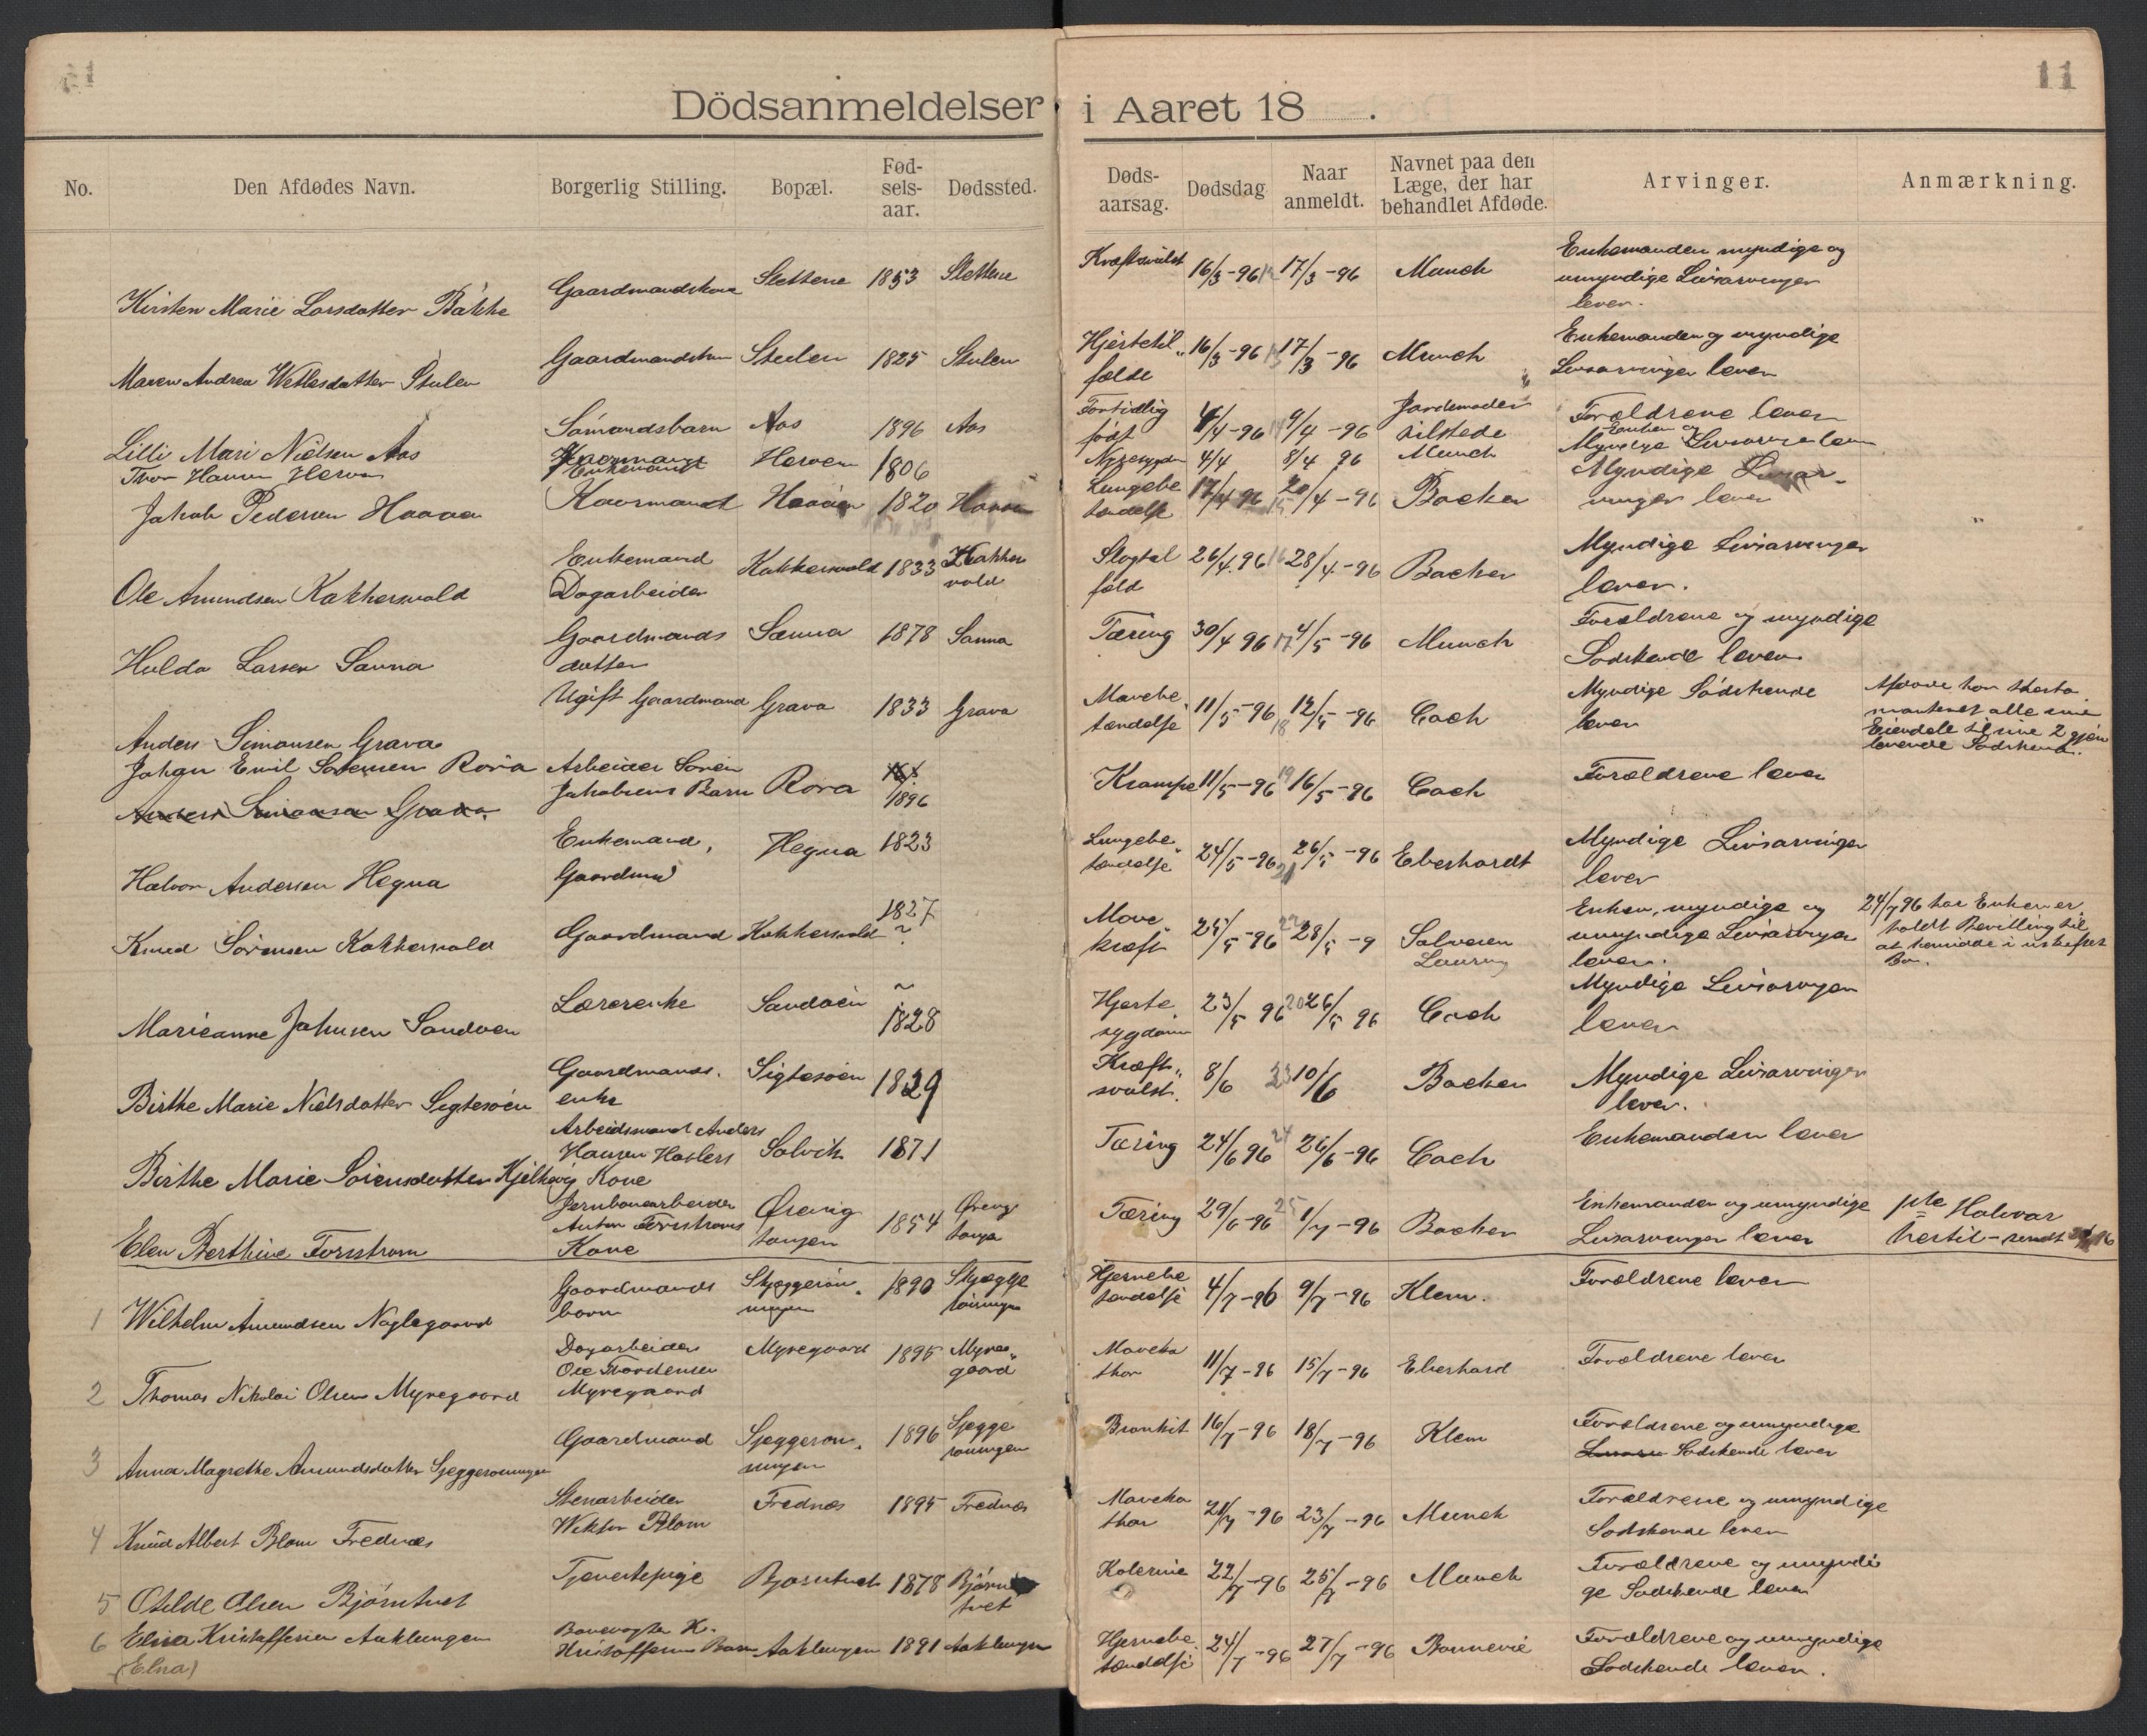 11
Dödsanmeldelser i Aaret 18 .
No. Den Afdødes Navn. Borgerlig Stilling. Bopæl. Fød-sels-aar. Dødssted. Døds-aarsag. Dødsdag Naar anmeldt. Navnet paa den Læge, der har behandlet Afdøde. Arvinger. Anmærkning.
Kirsten Marie Larsdatter Bakke Gaardmandskone Slettene 1853 Slettene Kræftsvulst 16/3-96 12 17/3-96 Munch Enkemanden myndige og umyndige Livsarvinger lever.
Maren Andrea Wetlesdatter Stulen Gaardmandskone Stulen 1825 Stulen Hjertetilfælde 16/3-96 13 17/3-96 Munch Enkemanden og myndige Livsarvinger lever
Lilli Mari Nielsen Aas Sömandsbarn Aas 1896 Aas Fortidlig født 4/4-96 14 9/4-96 Jordemoder tilstede Forældrene lever
Thor Hansen Herven Enkemand Herven 1806 Nyresygdom 4/4 8/4 96 Munch Enken og Myndige Livsarvinger lever
Jakob Pedersen Haaven Kaarmand Haaven 1820 Haaven Lungebetændelse 17/4 96 15 20/4-96 Backer Myndige Livsarvinger lever
Ole Amundsen Kokkersvold Enkemand Dagarbeider Kokkersvold 1833 Kokkersvold Slagtilfæld 26/4 96 16 28/4-96 Backer Myndige Livsarvinger lever.
Hulda Larsen Sanna Gaardmands datter Sanna 1878 Sanna Tæring 30/4 96 17 4/5-96 Munch Forældrene og myndige Sødskende lever
Anders Simonsen Grava Ugift Gaardmand Grava 1833 Grava Mavebetændelse 11/5-96 18 12/5-96 Coch Myndige Södskende lever Afdøde har thestamenteret alle sine Eiendele til sine 2 gjenlevende Sødskend.
Johan Emil Sörensen Rora Arbeider Sören Jakobsens Barn Rora 1896 Krampe 11/5-96 19 16/5-96 Coch Forældrene lever
Anders Simonsen Grava
Halvor Andersen Hegna Enkemand, Gaardmd Hegna 1823 Lungebetændelse 24/5-96 21 26/5-96 Eberhardt Myndige Livsarvinger lever
Knud Sörensen Kokkersvold Gaardmand Kokkersvold 1827 ? Mavekræft 25/5-96 22 28/5-9 Salvesen Enken, myndige og umyndige Livsarvinger lever. 24/7 96 har Enken erholdt Bevilling til at hensidde i uskiftet Bo.
Marieanne Johnsen Sandøen Lærerenke Sandøen 1828 Hjertesygdom 23/5 96 20 26/5 96 Coch Myndige Livsarvinger lever
Birthe Marie Nielsdatter Sigtesöen Gaardmandsenke Sigtesöen 1829 Kræftsvulst. 8/6 23 10/6 Backer Myndige Livsarvinger lever.
Birthe Marie Sörensdatter Kjelkevig Arbeidsmand Anders Hansen Haslers Kone Salvik 1871 Tæring 24/6 96 24 26/6-96 Coch Enkemanden lever
Elen Berthine Forsstrom Jernbanearbeider Anton Forsstroms Kone Ørevigtangen 1854 Ørevigtangen Tæring 29/6-96 25 1/7-96 Backer Enkemanden og umyndige Livsarvinger lever
1 Wilhelm Amundsen Naglegaard Gaardmands barn Skjeggeröningen 1890 Skjeggeröningen Hjernebetændelse 4/7-96 9/7-96 Klem. Forældrene lever
2 Thomas Nikolai Olsen Myregaard Dagarbeider Ole Thordensen Myregaard Myregaard 1895 Myregaard Mavekathar 11/7-96 15/7-96 Eberhard Forældrene lever
3 Anna Magrethe Amundsdatter Sjeggerönningen Gaardmand Sjeggerönningen 1896 Sjeggerönningen Bronkit 16/7-96 18/7-96 Klem Forældrene og umyndige Sødskende lever
4 Knud Albert Blom Frednes Stenarbeider Wiktor Blom Frednes 1895 Frednes Mavekathar 21/7-96 23/7-96 Munch Forældrene og umyndige Sødskende lever
5 Otilde Olsen Bjørntvet Tjenestepige Bjørntvet 1878 Bjørntvet Kolerine 22/7-96 25/7-96 Munch Forældrene og umyndige Sødskende lever
6 Elisa Kristoffersen Aaklungen Banevogter K. Kristoffersens Barn Aaklungen 1891 Aaklungen Hjernebetændelse 24/7-96 27/7-96 Bonnevie Forældrene og umyndige Sødskende lever.
(Elna)